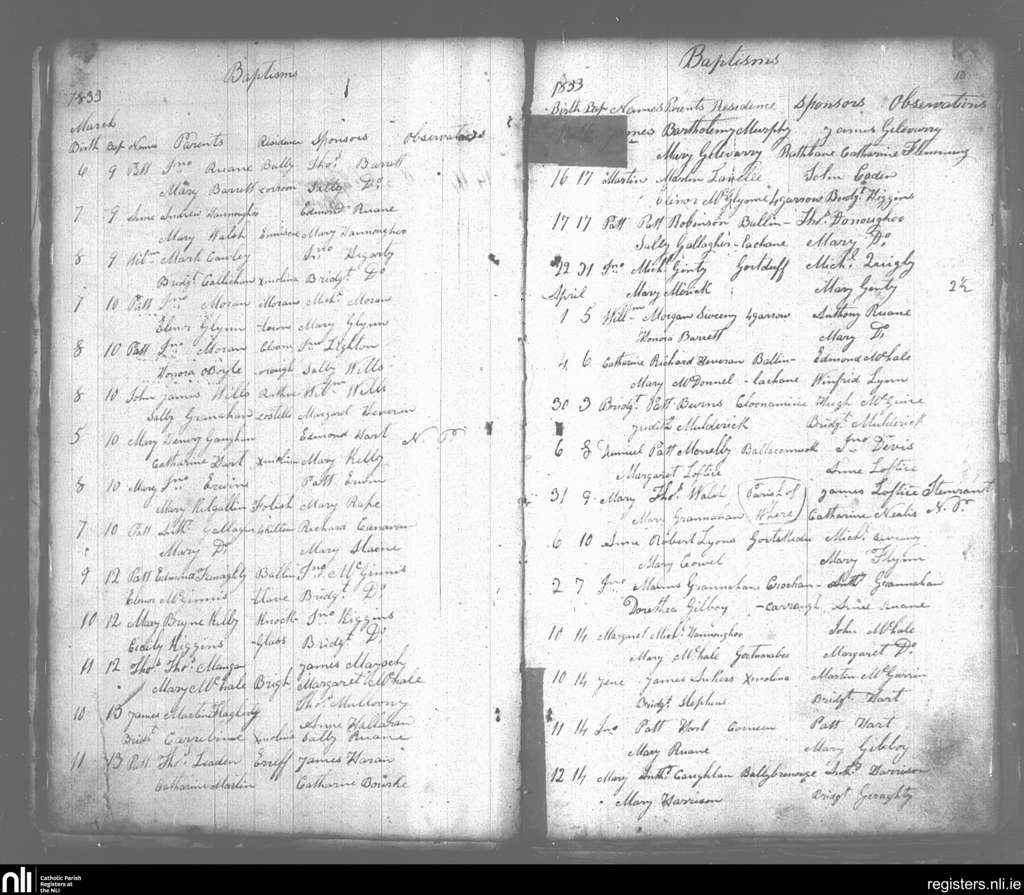 Baptisms
1833
March
Birth Bap Names Parents Residence Sponsors Observations
6 9 Patt Jno Ruane Bally Thos. Barrett
Mary Barrett corroon Sally Do
7 9 Anne Andrew Dannoughoo Edmond Ruane
Mary Walsh Enniscoe Mary Dannoughoo
8 9 Wilm Mark Cawley Jno Hegarty
Bridgt Callehan Xmolina Bridgt Do
7 10 Patt Jno Moran Morans Michl Moran
Elenor Glynn -town Mary Glynn
8 10 Patt Jno Moran Cloon Jno Lighton
Honora OBoyle -orough Sally Wills
8 10 John James Wills Rathne Wilm Wills
Sally Granahan costello Margaret Heveran
5 10 Mary Henry Gaughan Edmond Hart N. P.
Catharine Hart Xmolina Mary Kelly
8 10 Mary Jno Erwine Patt Erwin
Mary Kilgallin Folish Mary Rape
7 10 Patt Anth. Gallager Richard Canavan
Mary Do Mary Sloane
9 12 Patt Edmond Geraghty Ballin Jno McGinnis
Elenor McGinnis Glave Bridgt Do
10 12 Mary Bryne Kelly Knock- Jno Higgins
Cicily Higgins -Glass Bridgt Do
11 12 Thos. Thos. Mangan James Marach
Mary McHale Brigh Margaret McHale
10 13 James Martin Flagherty Thos Mullowny
Bridgt Carrabine Xmolina Anne Hallaran
Sally Ruane
11 13 Patt Thos. Leaden Erreff James Horan
Catharine Martin Catharine Bourke
Baptisms
10
1833
Birth Bap Names Parents Residence Sponsors Observations
James Bartholemy Murphy James Gilevarry
Mary Gilevarry Rathbane Catharine Flemming
16 17 Martin Martin Lavelle John Caden
Elinor McGlynne 4garrow Bridgt Higgins
17 17 Patt Patt Robinson Ballin- Thos. Donoughoo
Sally Gallagher -lachane Mary Do
22 31 Jno Michl Ginty Gortduff Michl Quigly
April Mary Merick Mary Genty 2½
1 5 Willm Morgan Sweeny 4garrow Anthony Ruane
Honora Barrett Mary Do
4 6 Catharine Richard Heveran Ballin- Edmond McHale
Mary McDonnel -lachane Winfrid Lynn
30 3 Bridgt. Patt Burns Cloonaminie Hugh McGuire
Judith Mulderick Bridgt Mulderick
6 8 Samuel Patt Monelly Jno Devis
Margaret Loftice Anne Loftice
31 9 Mary Thos. Walsh (Parish of James Loftice
Mary Grannahan Where) Catharine Nealis N. P.
6 10 Anne Robert Lyons Gortskedu Michl Sweeny
Mary Cowel Mary Flynn
2 7 Jno Manus Grannahan Crockan- Anth. Grannahan
Dorethea Gilboy -carraugh Anne Ruane
10 14 Margaret Michl Dannoughoo John McHale
Mary McHale Gortnarabee Margaret Do
10 14 Jane James Ankers Xmolina Martin McGarrin
Bridgt Stephens Bridgt Hart
11 14 Jno Patt Hart Comeen Patt Hart
Mary Ruane Mary Gilboy
12 14 Mary Anth. Caughlan Ballybrennoge Anth. Harrison
Mary Harrison Bridgt Geraghty
nli
Catholic Parish
Registers at
the NLI
registers.nli.ie